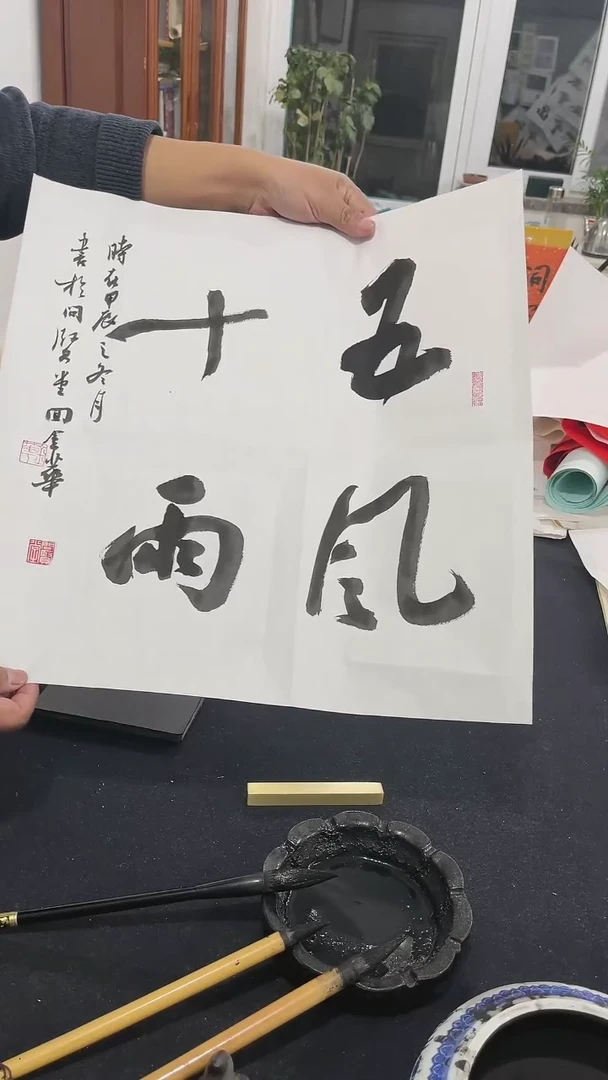 五風
十雨
時在甲辰之冬月
書於問賢堂回金華